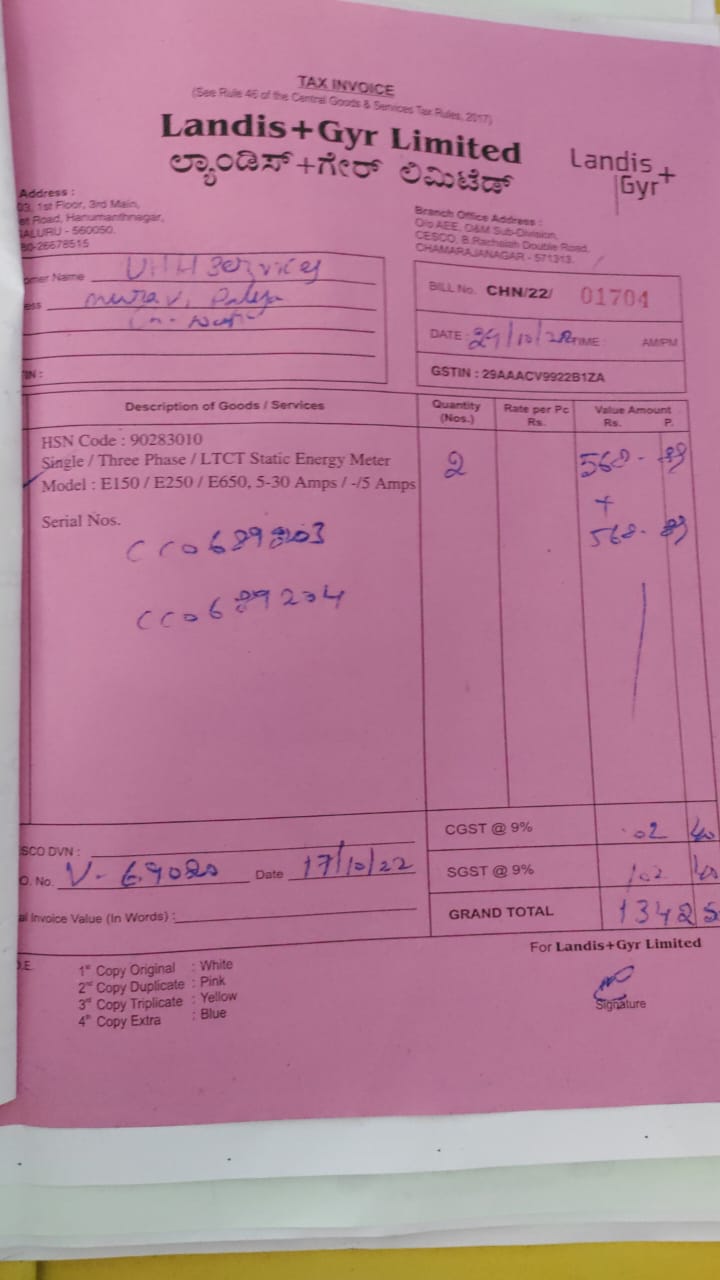 TAX INVOICE
(See Rule 46 of the Central Goods & Services Tax Rules, 2017)
Landis+Gyr Limited
ಲ್ಯಾಂಡಿಸ್+ಗೇರ್ ಲಿಮಿಟೆಡ್
Landis+
Gyr
Address :
1st Floor, 3rd Main,
Road, Hanumanthnagar,
ALURU - 560050.
80-26678515
Branch Office Address :
O/o AEE, O&M Sub-Division,
CESCO, B.Rachaiah Double Road,
CHAMARAJANAGAR - 571313.
omer Name Services
ess
TIN :
BILL No. CHN/22/ 01704
DATE : /10/22 TIME : AM/PM
GSTIN : 29AAACV9922B1ZA
Description of Goods / Services Quantity (Nos.) Rate per Pc Rs. Value Amount Rs. P.
HSN Code : 90283010
Single / Three Phase / LTCT Static Energy Meter 2 568-
Model : E150 / E250 / E650, 5-30 Amps / -/5 Amps
+
Serial Nos. 568-
CC0689204
CGST @ 9% 02
SCO DVN :
O. No. V-69020 Date 17/10/22
SGST @ 9% 102
al Invoice Value (In Words) :
GRAND TOTAL 1342
For Landis+Gyr Limited
1st Copy Original : White
2nd Copy Duplicate : Pink
3rd Copy Triplicate : Yellow
4th Copy Extra : Blue
Signature